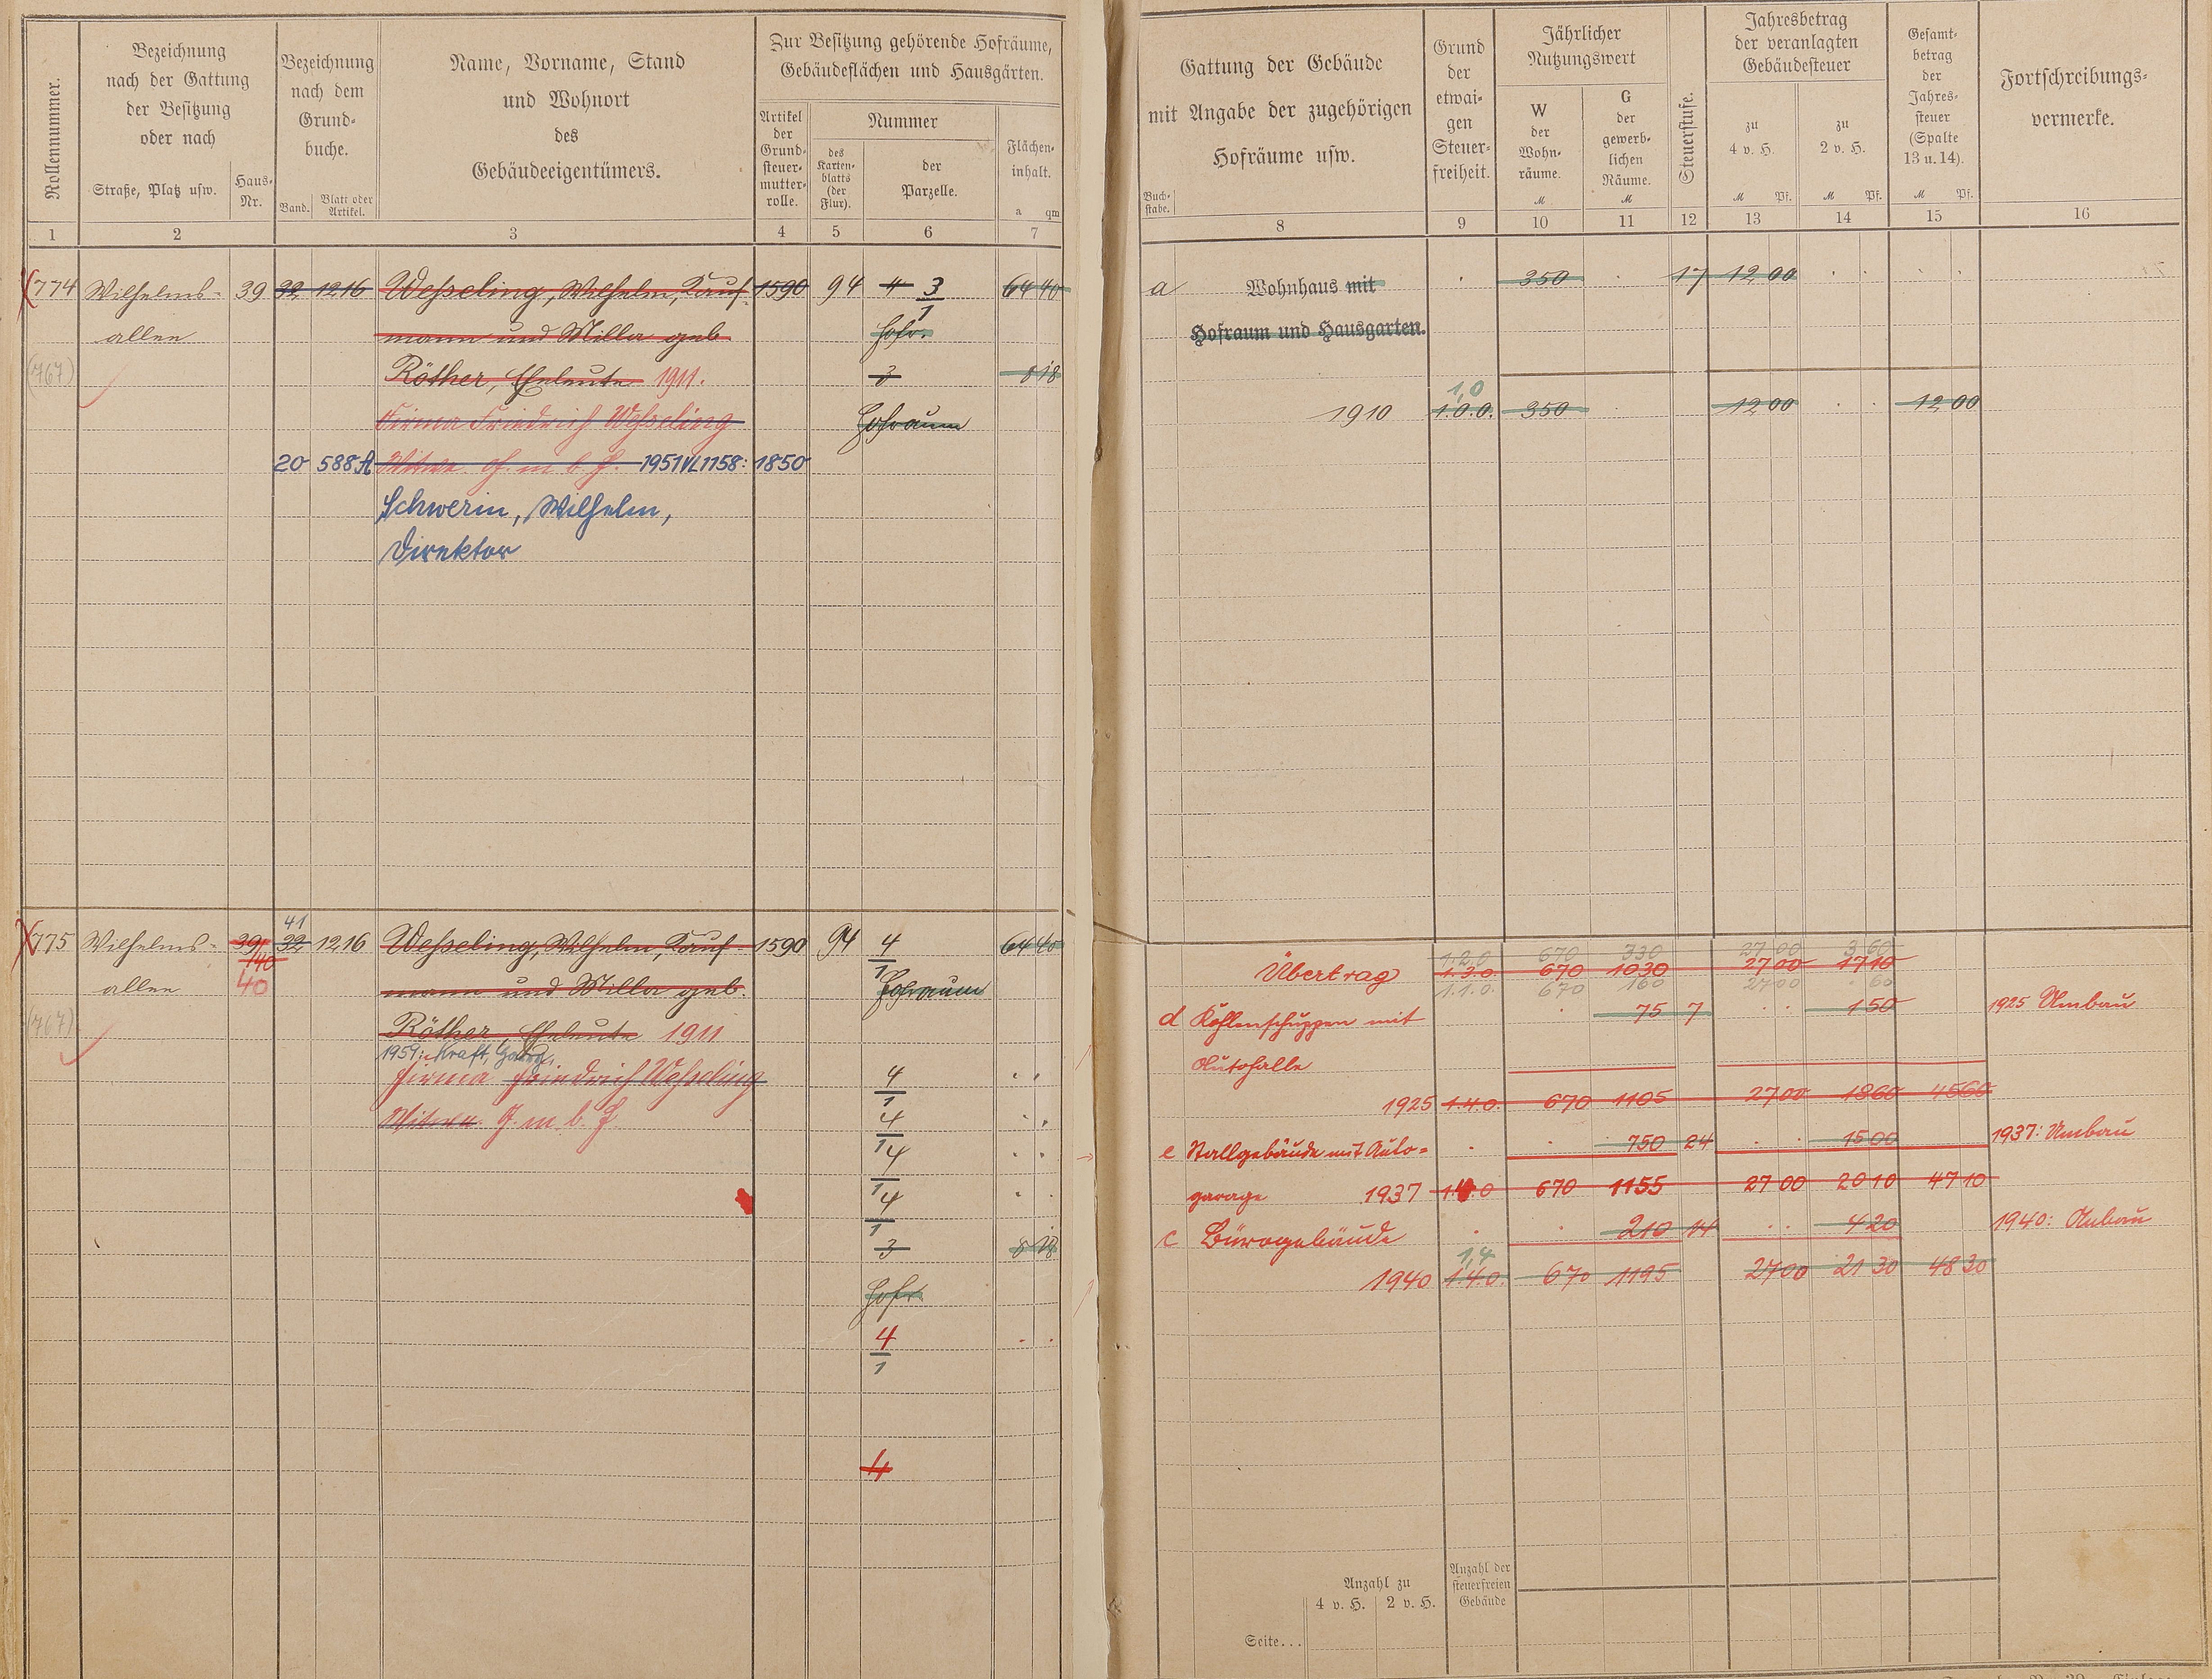 Rollennummer.
Bezeichnung
nach der Gattung
der Besitzung
oder nach
Straße, Platz usw.
Haus-
Nr.
Bezeichnung
nach dem
Grund-
buche.
Band.
Blatt oder
Artikel.
Name, Vorname, Stand
und Wohnort
des
Gebäudeeigentümers.
Zur Besitzung gehörende Hofräume,
Gebäudeflächen und Hausgärten.
Artikel
der
Grund-
steuer-
mutter-
rolle.
Nummer
des
Karten-
blatts
(der
Flur).
der
Parzelle.
Flächen-
inhalt.
a qm
1 2 3 4 5 6 7
774 Wilhelms- 39 32 1216 Wesseling, Wilhelm, Kauf- 1590 94 4 3/1 64 40
allee mann und Milla geb. Hofr.
(767) Röther, Eheleute 1911. 3 8 18
Firma Friedrich Wesseling Hofraum
20 588A Witwe G. m. b. H. 1951 VL 1158: 1850
Schwerin, Wilhelm,
Direktor
775 Wilhelms- 39/40 41 32 1216 Wesseling, Wilhelm, Kauf- 1590 94 4/1 64 40
allee 40 mann und Milla geb. Hofraum
(767) Röther, Eheleute 1911
1959: Kraft, Georg,
Firma Friedrich Wesseling 4/1
Witwe G. m. b. H. 4/1
4/1
4/1
3 8 18
Hofr.
4/1
4
Gattung der Gebäude
mit Angabe der zugehörigen
Hofräume usw.
Buch-
stabe.
Grund
der
etwai-
gen
Steuer-
freiheit.
Jährlicher
Nutzungswert
W
der
Wohn-
räume.
M
G
der
gewerb-
lichen
Räume.
M
Steuerstufe.
Jahresbetrag
der veranlagten
Gebäudesteuer
zu
4 v. H.
M Pf.
zu
2 v. H.
M Pf.
Gesamt-
betrag
der
Jahres-
steuer
(Spalte
13 u. 14).
M Pf.
Fortschreibungs-
vermerke.
8 9 10 11 12 13 14 15 16
a Wohnhaus mit 350 17 12 00
Hofraum und Hausgarten.
1,0
1910 1.0.0. 350 12 00 12 00
1.2.0 670 330 27 00 3 60
Übertrag 1.3.0. 670 1030 27 00 17 10
1.1.0. 670 160 27 00 60
d Kohlenschuppen mit 75 7 1 50 1925 Umbau
Autohalle
1925 1.4.0. 670 1105 27 00 18 60 45 60
e Stallgebäude mit Auto- 750 24 15 00 1937: Umbau
garage 1937 1.4.0 670 1155 27 00 20 10 47 10
c Bürogebäude 210 14 4 20 1940: Anbau
1,4
1940 1.4.0. 670 1195 27 00 21 30 48 30
Anzahl zu
4 v. H. 2 v. H.
Anzahl der
steuerfreien
Gebäude
Seite...